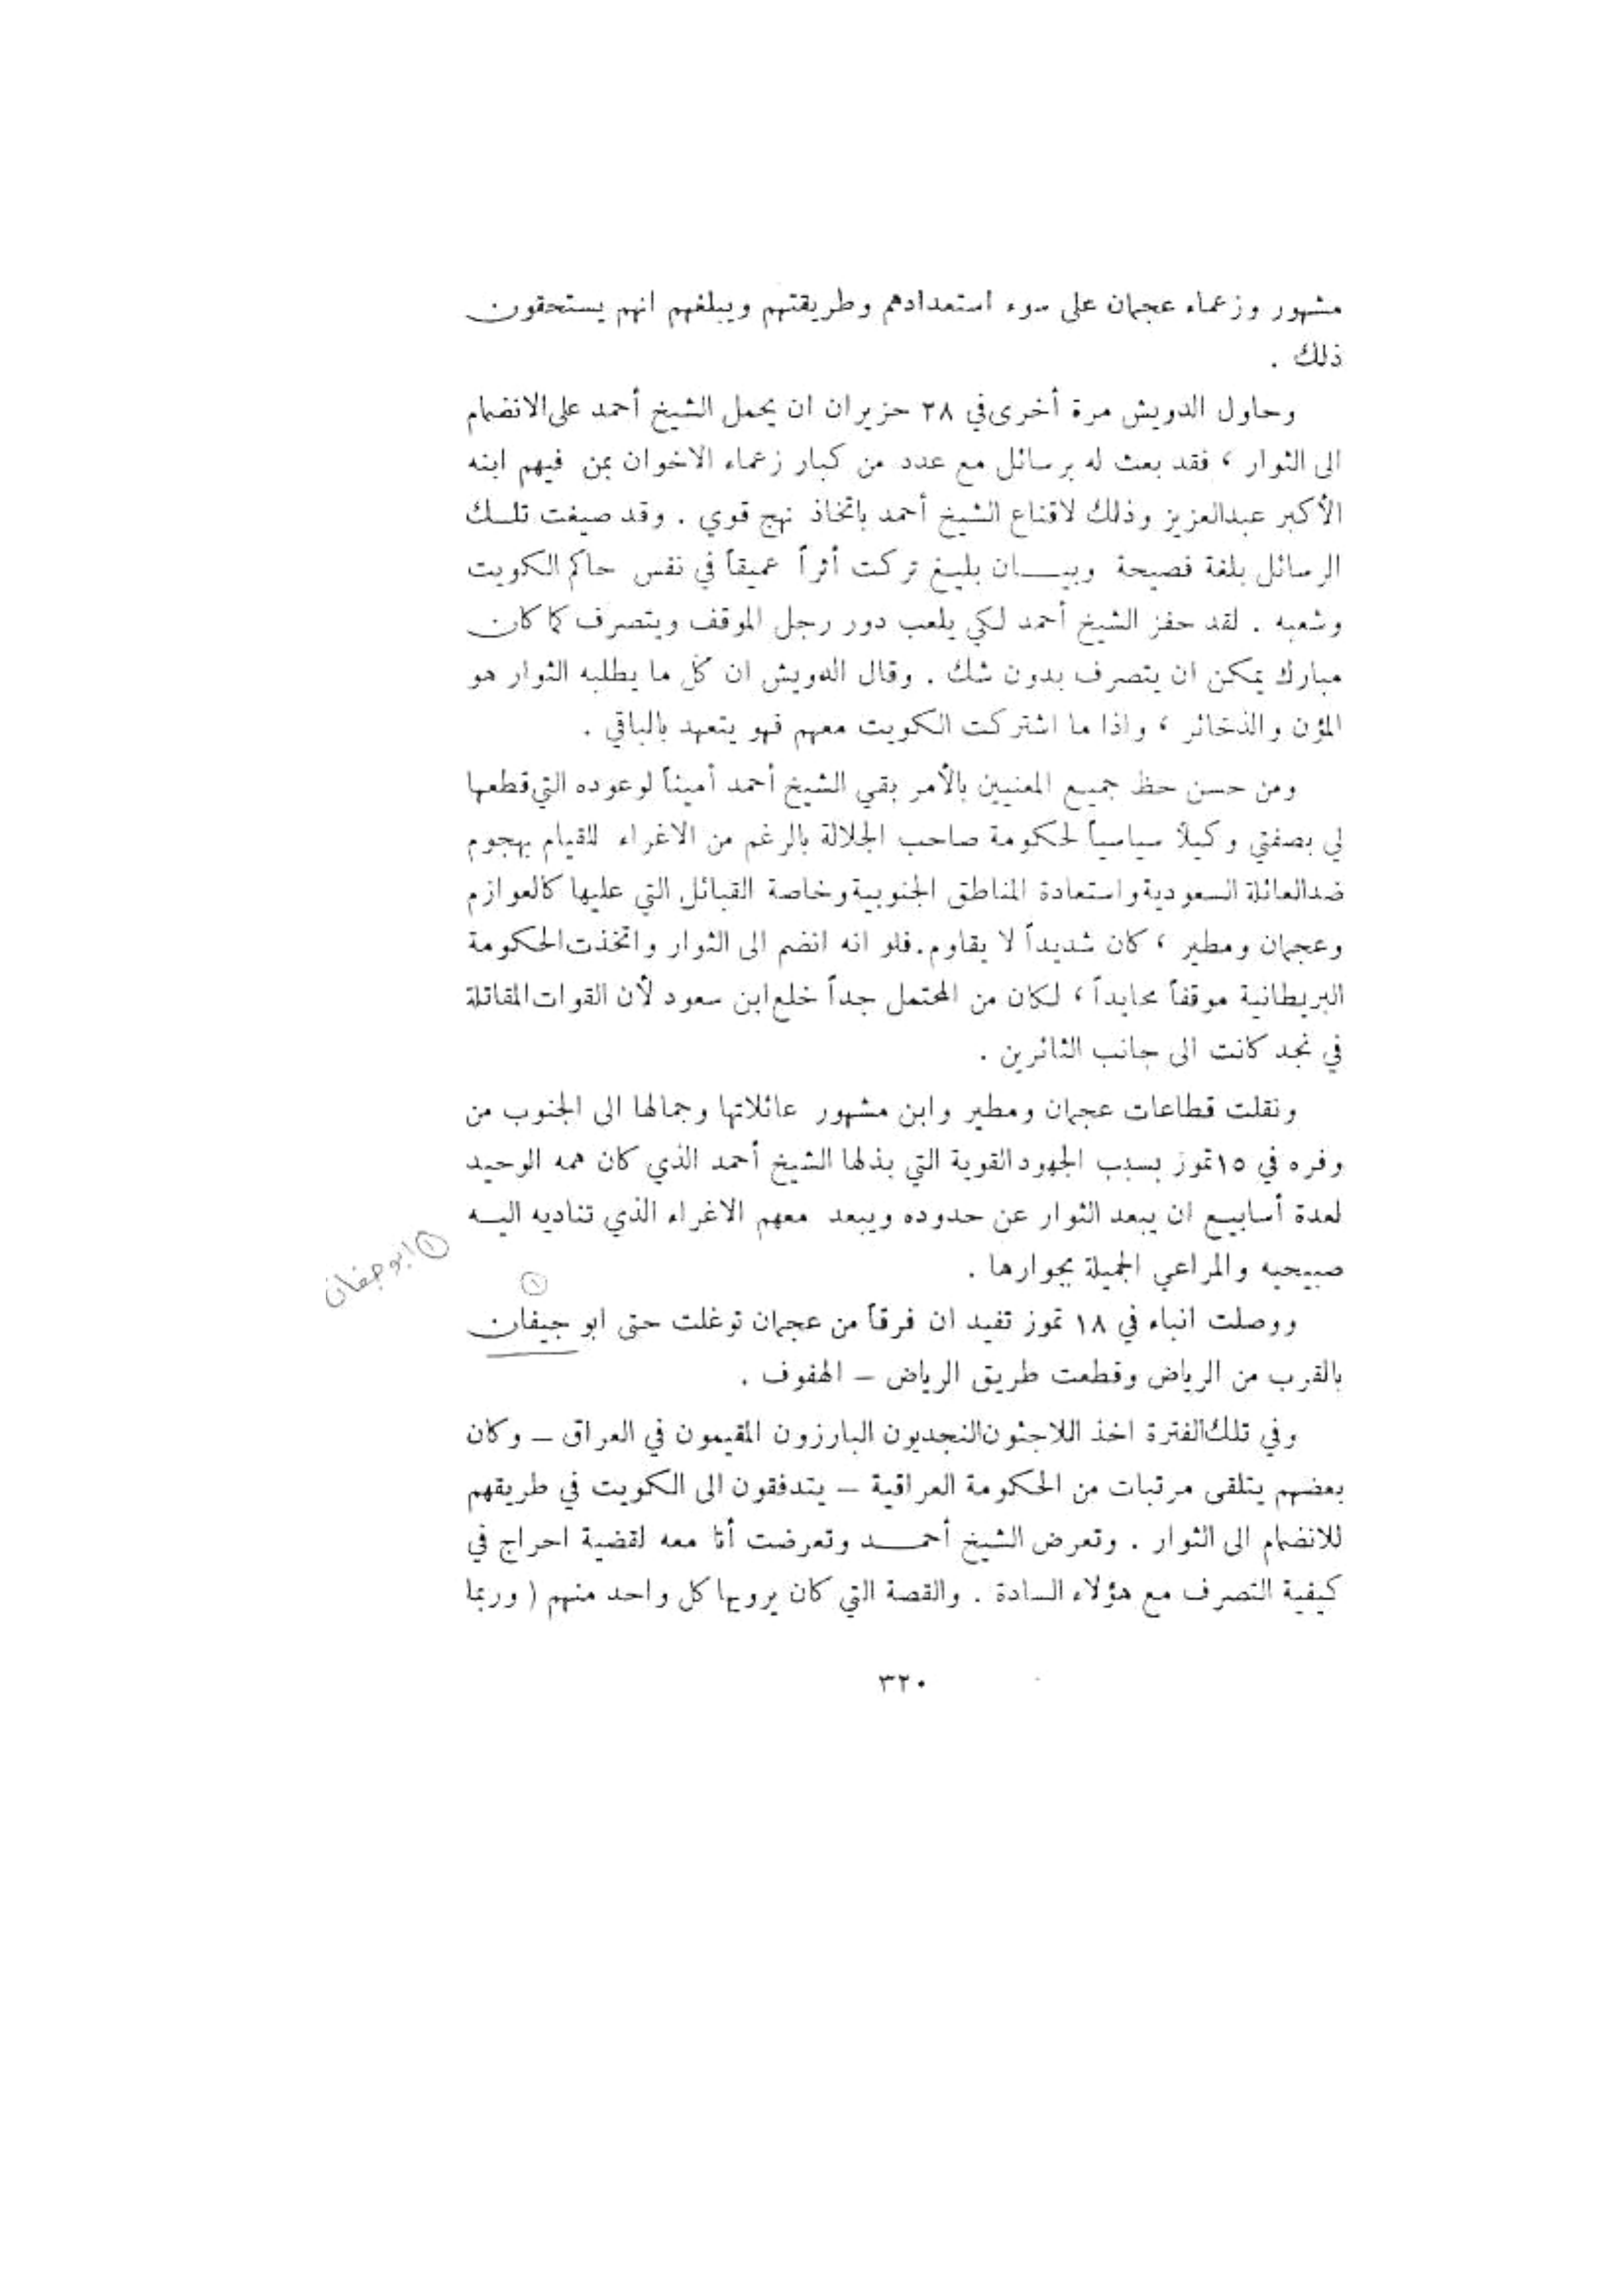 مشهور وزعماء عجمان على سوء استعدادهم وطريقتهم ويبلغهم انهم يستحقون
ذلك .
وحاول الدويش مرة أخرى في ٢٨ حزيران ان يحمل الشيخ أحمد على الانضمام
الى الثوار ، فقد بعث له برسائل مع عدد من كبار زعماء الاخوان بمن فيهم ابنه
الأكبر عبدالعزيز وذلك لاقناع الشيخ أحمد باتخاذ نهج قوي . وقد صيغت تلك
الرسائل بلغة فصيحة وبيان بليغ تركت أثراً عميقاً في نفس حاكم الكويت
وشعبه . لقد حفز الشيخ أحمد لكي يلعب دور رجل الموقف ويتصرف كما كان
مبارك يمكن ان يتصرف بدون شك . وقال الدويش ان كل ما يطلبه الثوار هو
المؤن والذخائر ، واذا ما اشتركت الكويت معهم فهو يتعهد بالباقي .
ومن حسن حظ جميع المعنيين بالأمر بقي الشيخ أحمد أميناً لوعوده التي قطعها
لي بصفتي وكيلاً سياسياً لحكومة صاحب الجلالة بالرغم من الاغراء للقيام بهجوم
ضد العائلة السعودية واستعادة المناطق الجنوبية وخاصة القبائل التي عليها كالعوازم
وعجمان ومطير ، كان شديداً لا يقاوم . فلو انه انضم الى الثوار واتخذت الحكومة
البريطانية موقفاً محايداً ، لكان من المحتمل جداً خلع ابن سعود لأن القوات المقاتلة
في نجد كانت الى جانب الثائرين .
ونقلت قطاعات عجمان ومطير وابن مشهور عائلاتها وجمالها الى الجنوب من
وفره في ١٥ تموز بسبب الجهود القوية التي بذلها الشيخ أحمد الذي كان همه الوحيد
لعدة أسابيع ان يبعد الثوار عن حدوده ويبعد معهم الاغراء الذي تناديه اليه
صبيحيه والمراعي الجميلة بجوارها .
① ابو جفان
①
ووصلت انباء في ١٨ تموز تفيد ان فرقاً من عجمان توغلت حتى ابو جيفان
بالقرب من الرياض وقطعت طريق الرياض – الهفوف .
وفي تلك الفترة اخذ اللاجئون النجديون البارزون المقيمون في العراق – وكان
بعضهم يتلقى مرتبات من الحكومة العراقية – يتدفقون الى الكويت في طريقهم
للانضمام الى الثوار . وتعرض الشيخ أحمد وتعرضت أنا معه لقضية احراج في
كيفية التصرف مع هؤلاء السادة . والقصة التي كان يرويها كل واحد منهم ( وربما
٣٢٠